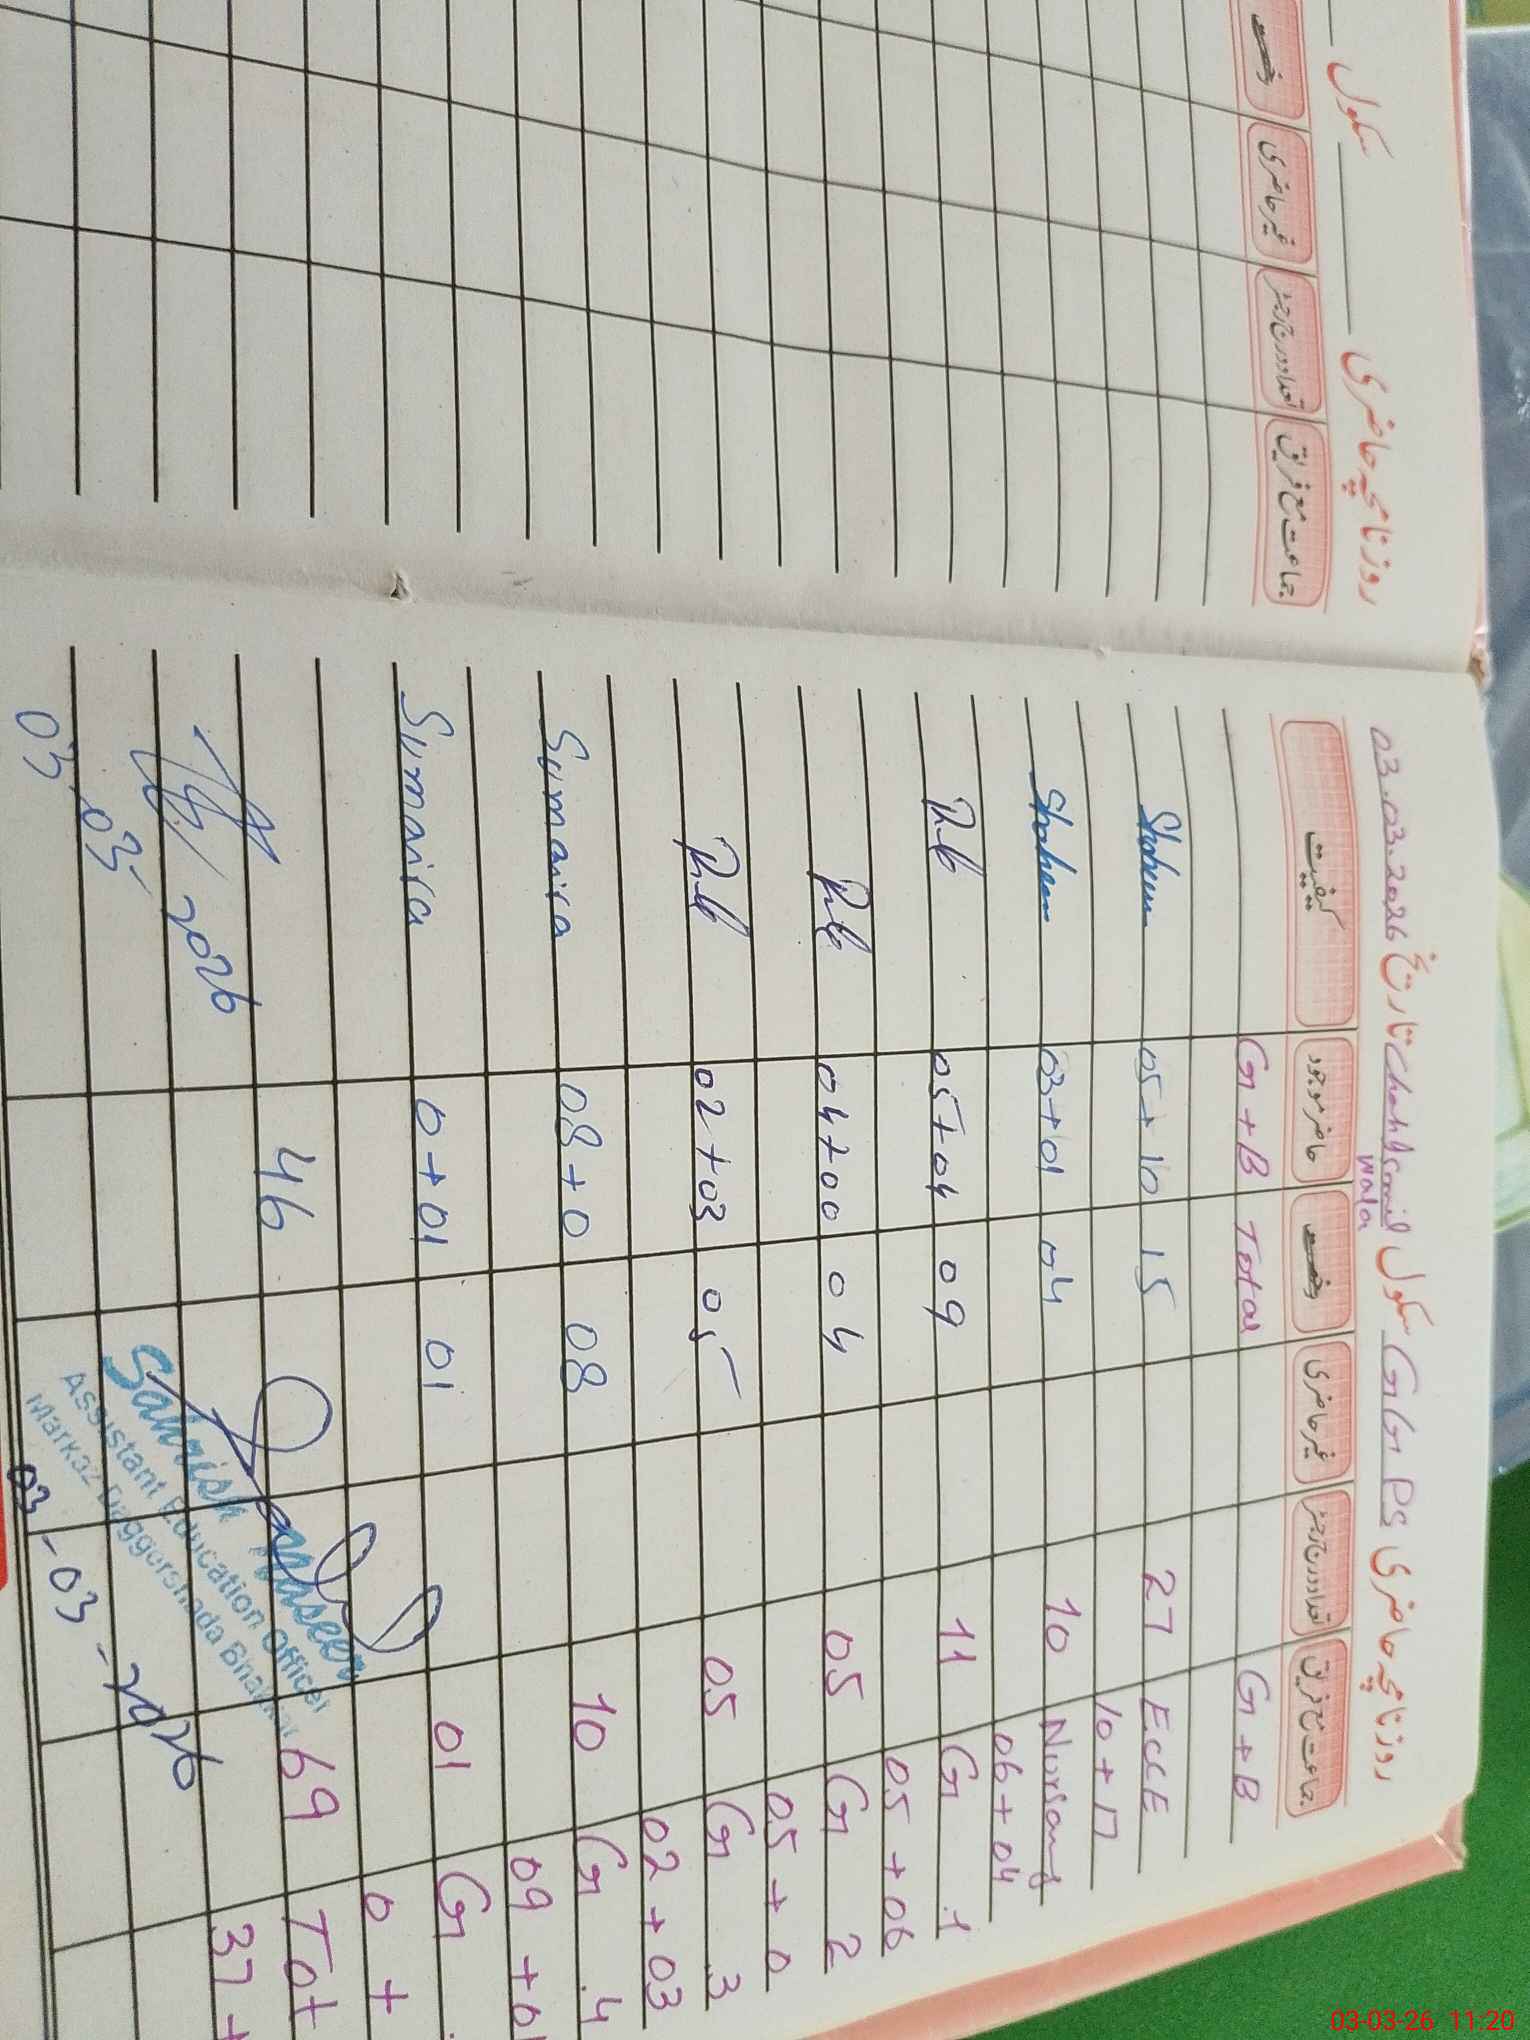 روزنامچہ حاضری سکول
جماعت مع فریق تعداد درج رجسٹر غیر حاضری رخصت
روزنامچہ حاضری GG PS سکول Chah Jamil wala تاریخ 03.03.2026
جماعت مع فریق تعداد درج رجسٹر غیر حاضری رخصت حاضر موجود کیفیت
G+B Total G+B
ECCE 27 15 05+10 Shaheen
10+17
Nursary 10 04 03+01 Shaheen
06+04
G 1 11 09 05+04
05+06
G 2 05 04 04+00
05+0
G 3 05 05 02+03
02+03
G 4 10 08 08+0 Sumaira
09+01
G 01 01 0+01 Sumaira
0+
Tot 69 46
37+
Sahrish Naseer
Assistant Education Officer
Markaz Daggarshada Bhakkar
03-03-2026
03.03.2026
03-03-26 11:20